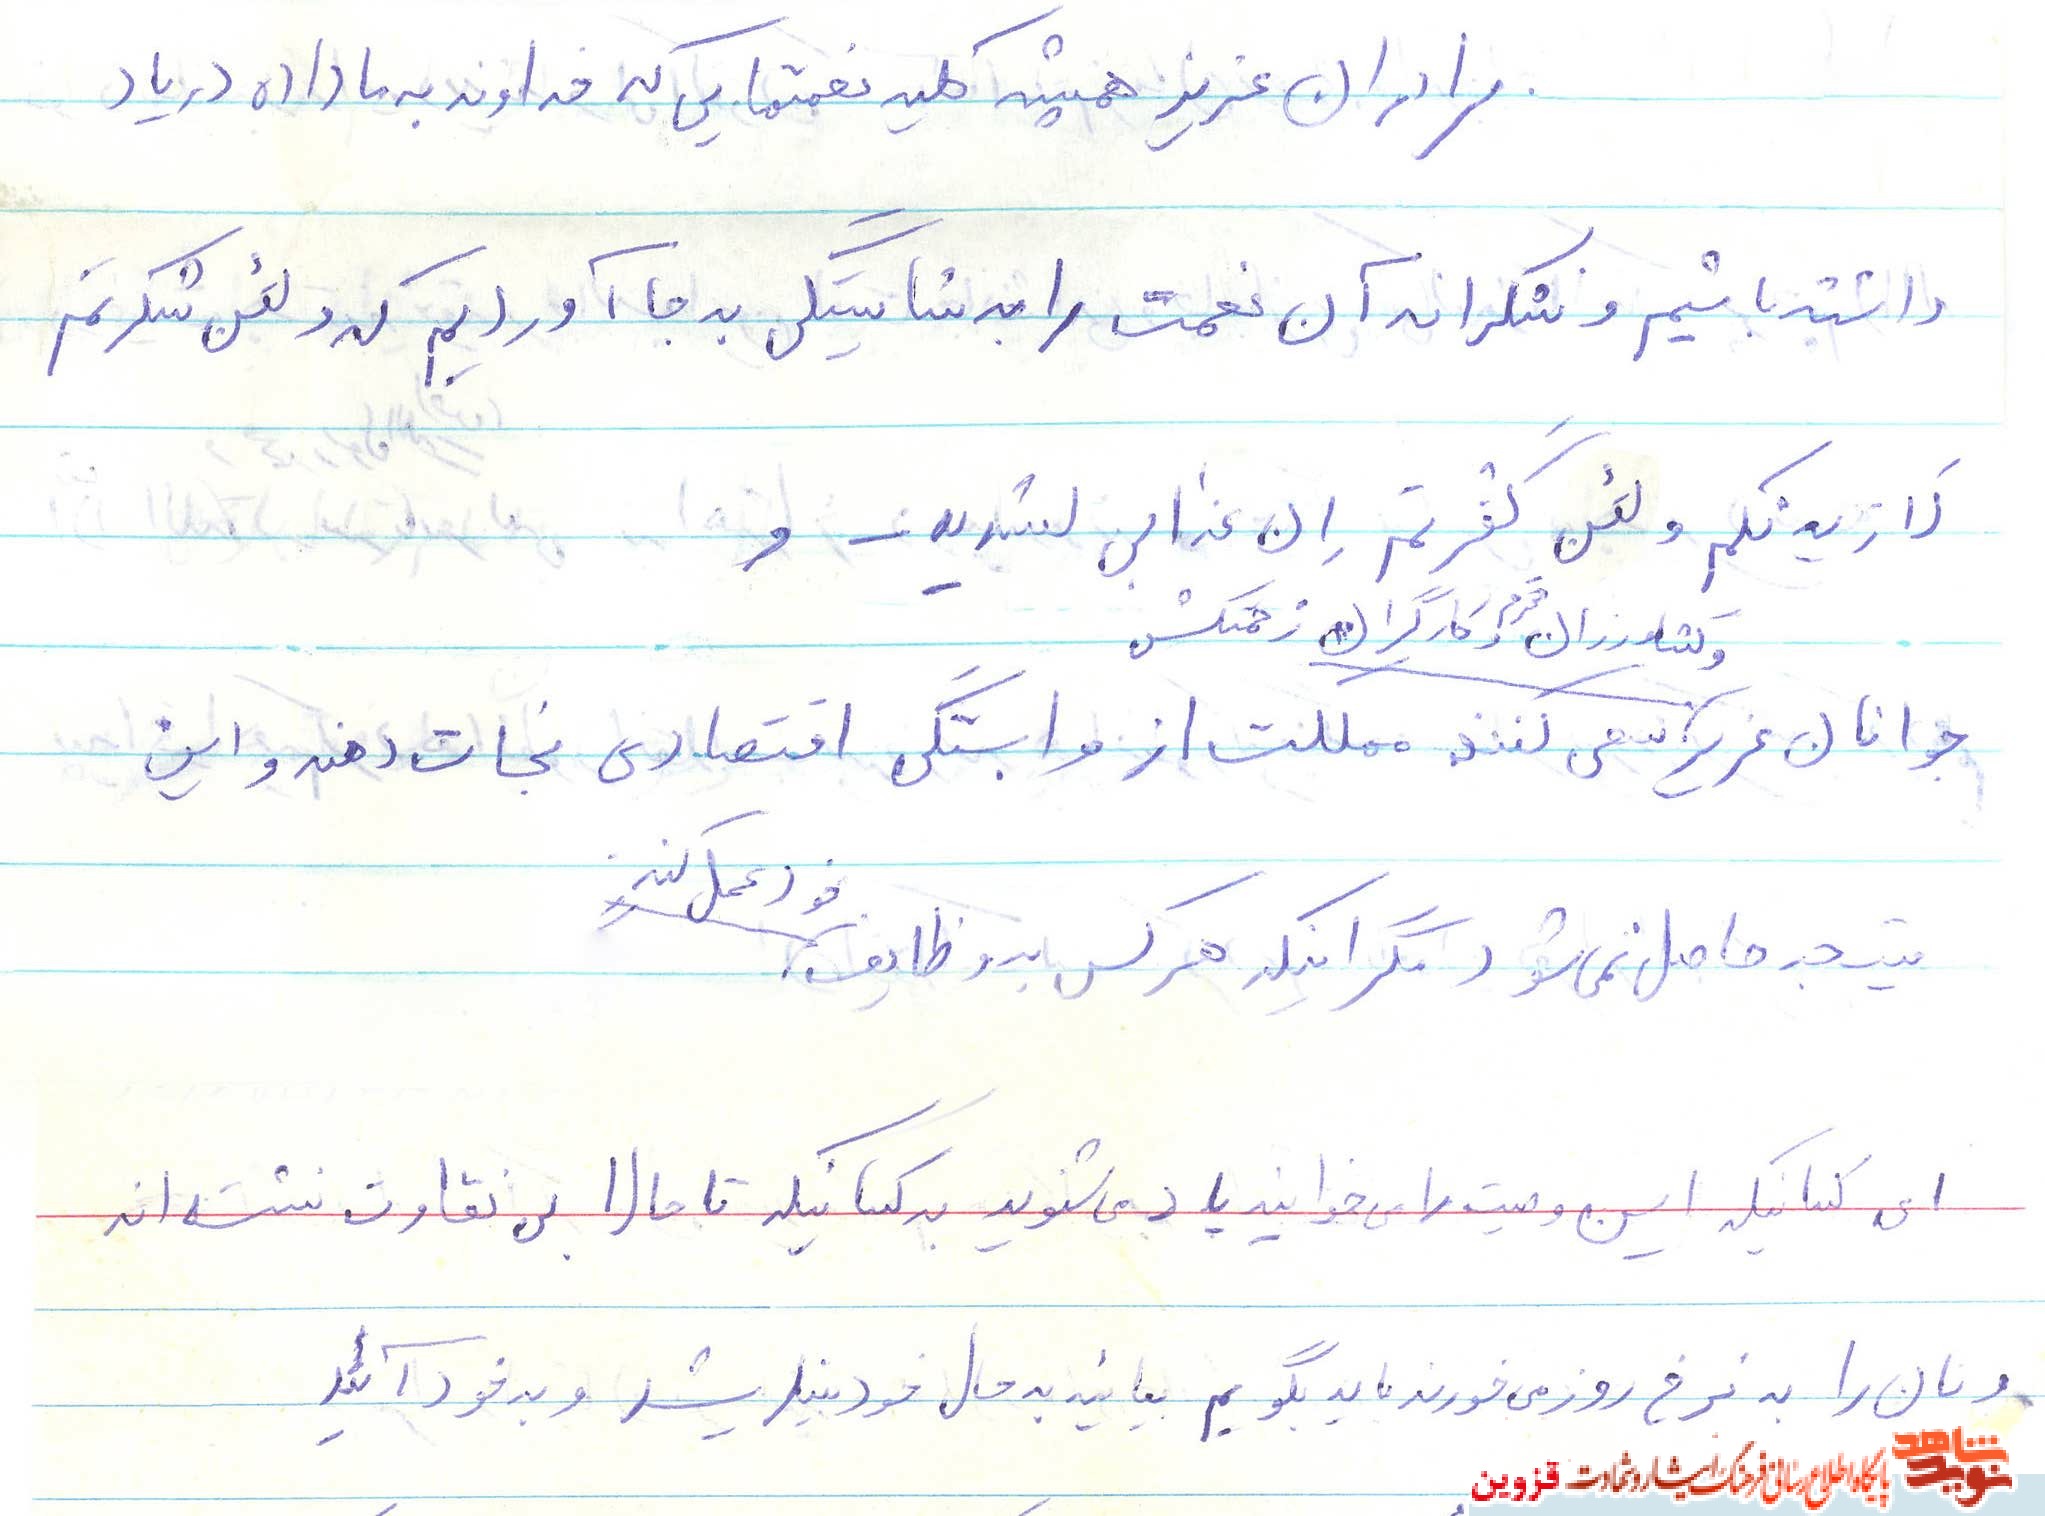 برادران عزیز همیشه کلیه نعمتهایی که خداوند به ما داده در یاد
داشته باشیم و شکرانه آن نعمت را به شایستگی به جا آوردیم که ولئن شکرتم
لازیدنکم ولئن کفرتم ان عذابی لشدید و
و کشاورزان محترم و کارگران زحمتکش
جوانان عزیز سعی کنند مملکت از وابستگی اقتصادی نجات دهند و این
خود عمل کنند
نتیجه حاصل نمی شود مگر اینکه هر کس به وظایف
ای کسانیکه این وصیت را می خوانید یا می شنوید به کسانیکه تا حالا بی تفاوت نشسته اند
و نان را به نرخ روز می خورند باید بگویم بیائید به حال خود بیندیشید و به خود آئید
شاهد نوید
پایگاه اطلاع رسانی فرهنگ ایثار و شهادت قزوین